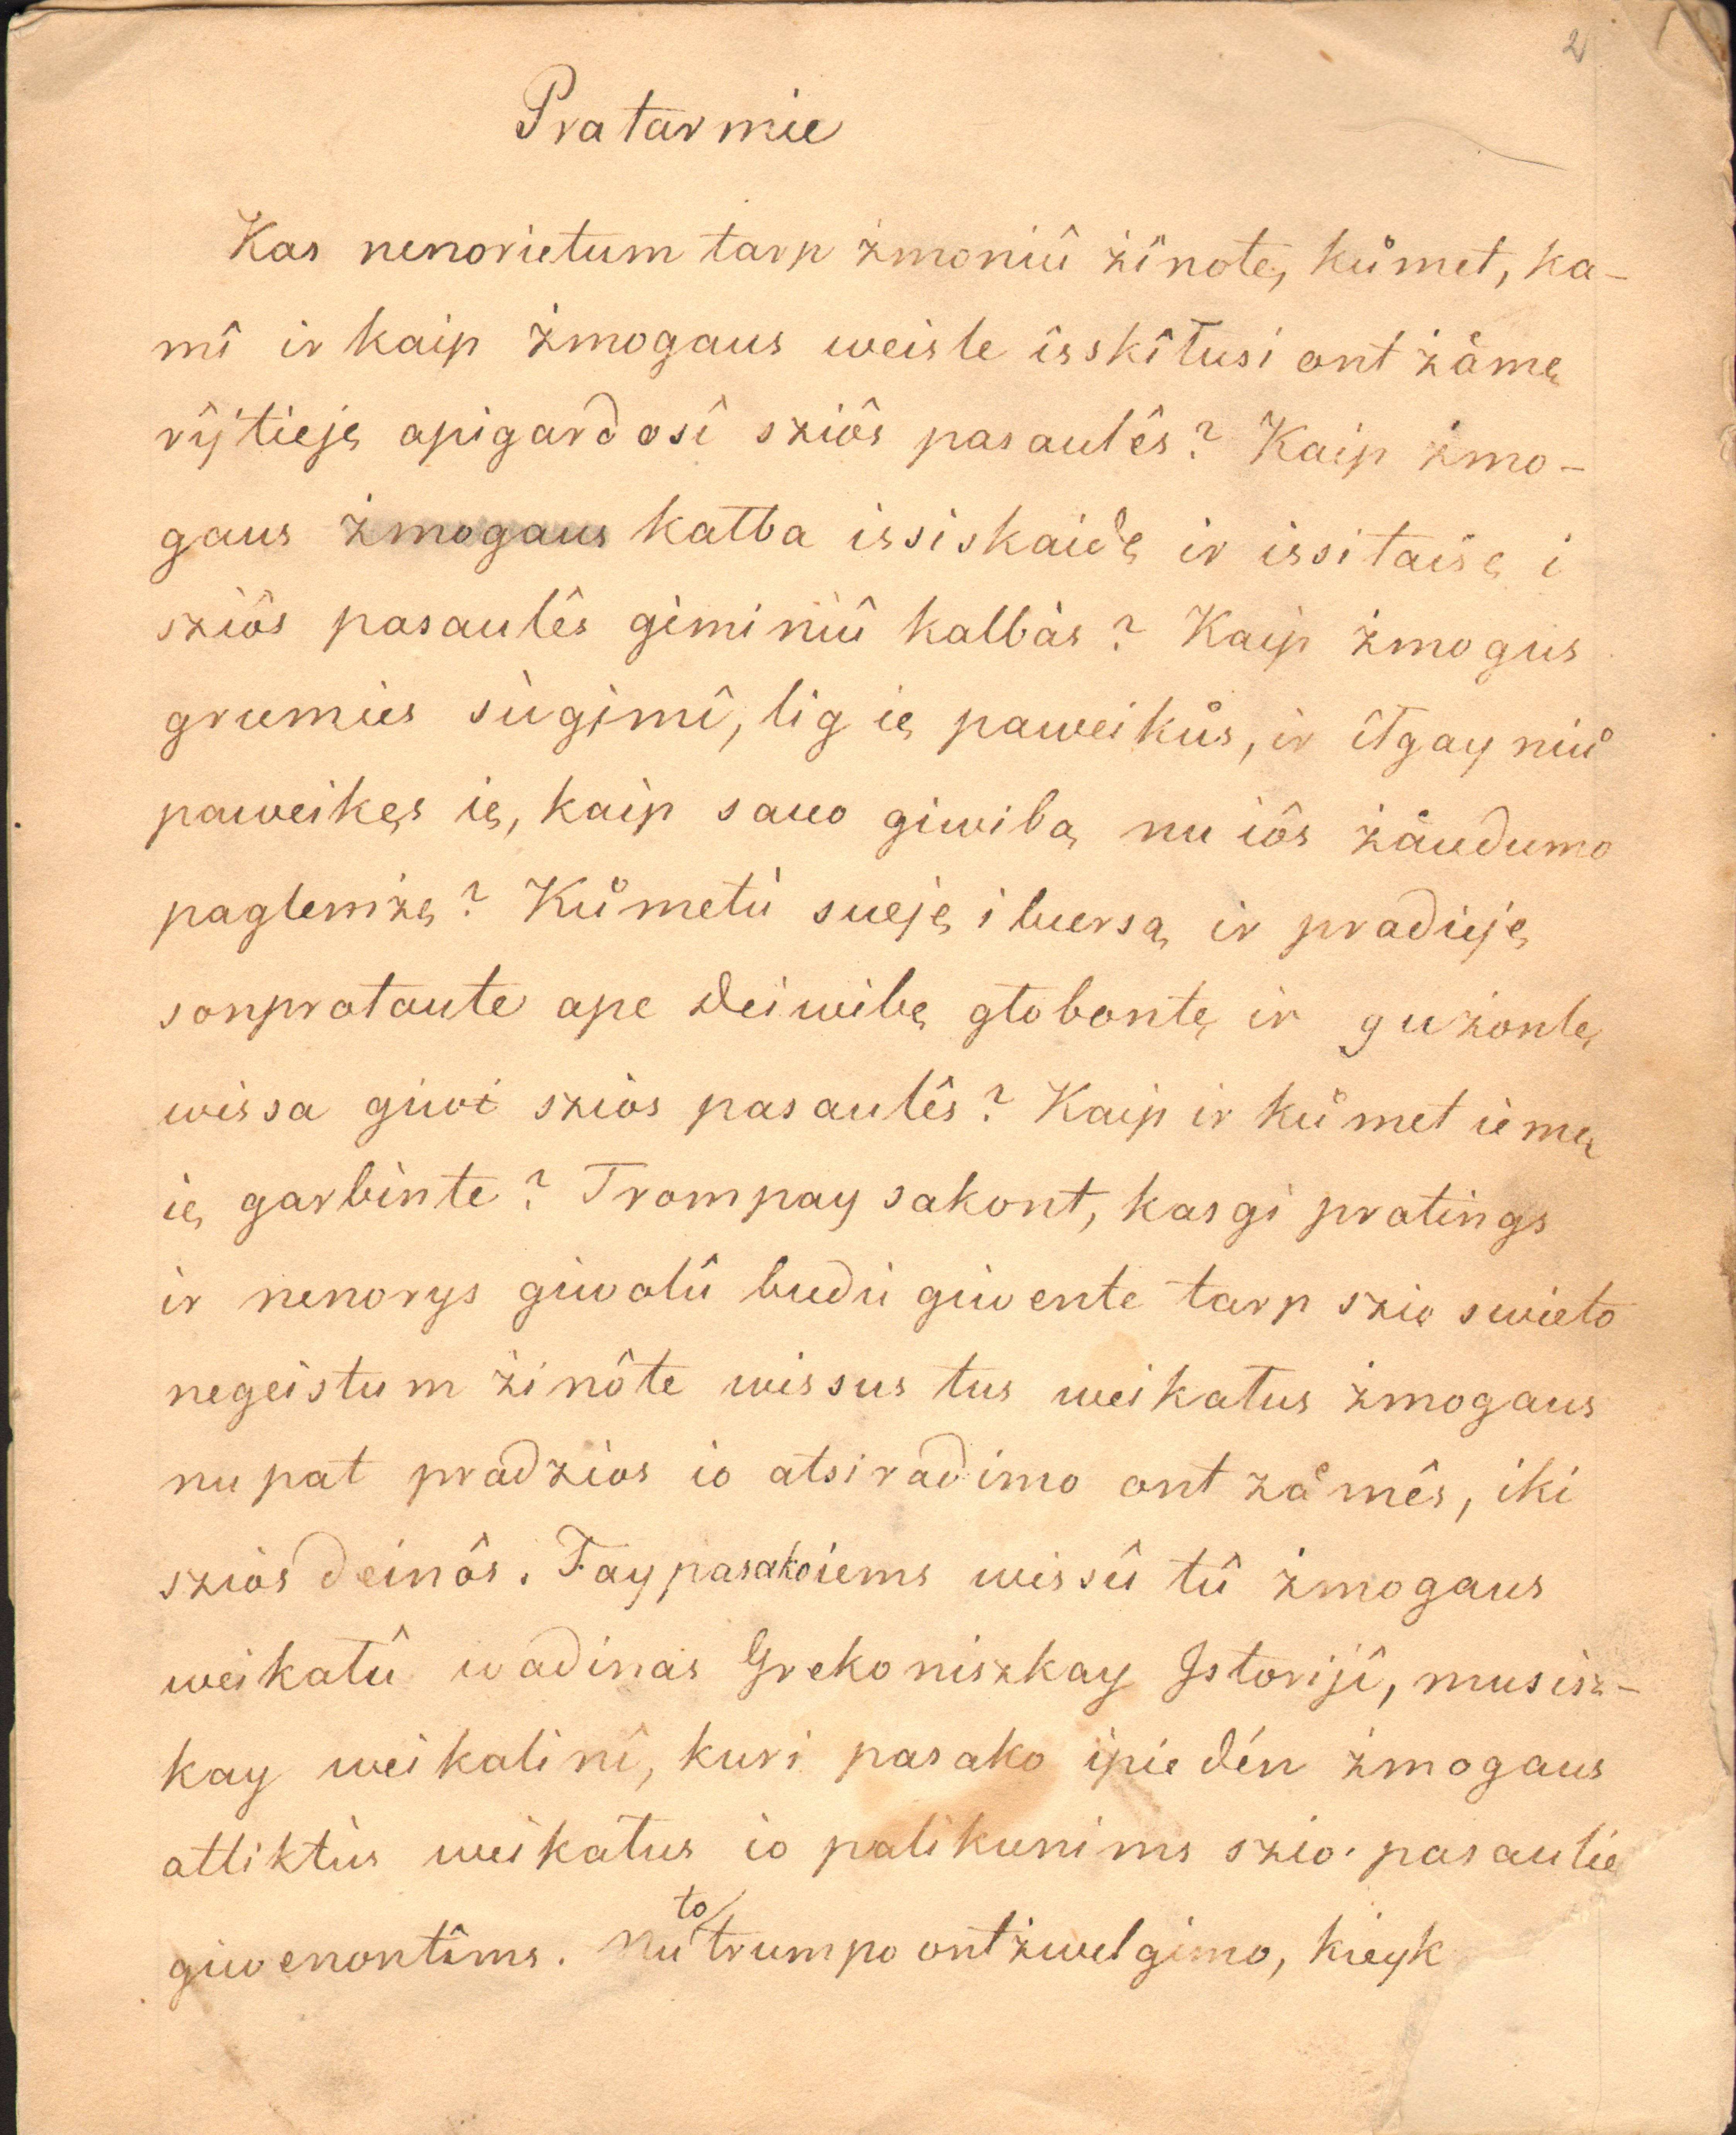 2
Pratarmie
Kas nenorietum tarp żmoniû żînotę, kůmet, ka-
mî ir kaip żmogaus weisle îsskîtusi ont żåmę
rŷtieję apigardosî sziôs pasaulês? Kaip żmo-
gaus żmogaus kałba issiskaidę ir issitaisę i
sziôs pasaulês giminiû kalbàs? Kaip żmogus
grumies sùgimî, lig ię paweikůs, ir îłgay niů
paweikęs ię, kaip sawo giwibą nu iôs żåudumo
paglemżę? Kůmetù sueję i buersą ir pradieję
sonprotaute ape deiwibę głobontę ir gużontę
wissa giwi sziôs pasaulês? Kaip ir kůmet iemę
ię garbinte? Trompay sakont, kasgi protings
ir nenorys giwolû budu giwente tarp szio swieto
negeistum żinôte wissus tus weikałus żmogaus
nu pat pradżios io atsiradimo ont żåmês, iki
sziôs deinôs. Tay pasakoiems wissû tû żmogaus
weikałû wadinas Grekoniszkay Istorijî, musisz-
kay weikalinî, kuri pasako ipiedén żmogaus
atliktùs weikałus io palikunims szio pasaulie
giwenontîms. Nu to trumpo ontżwelgimo, kieyk